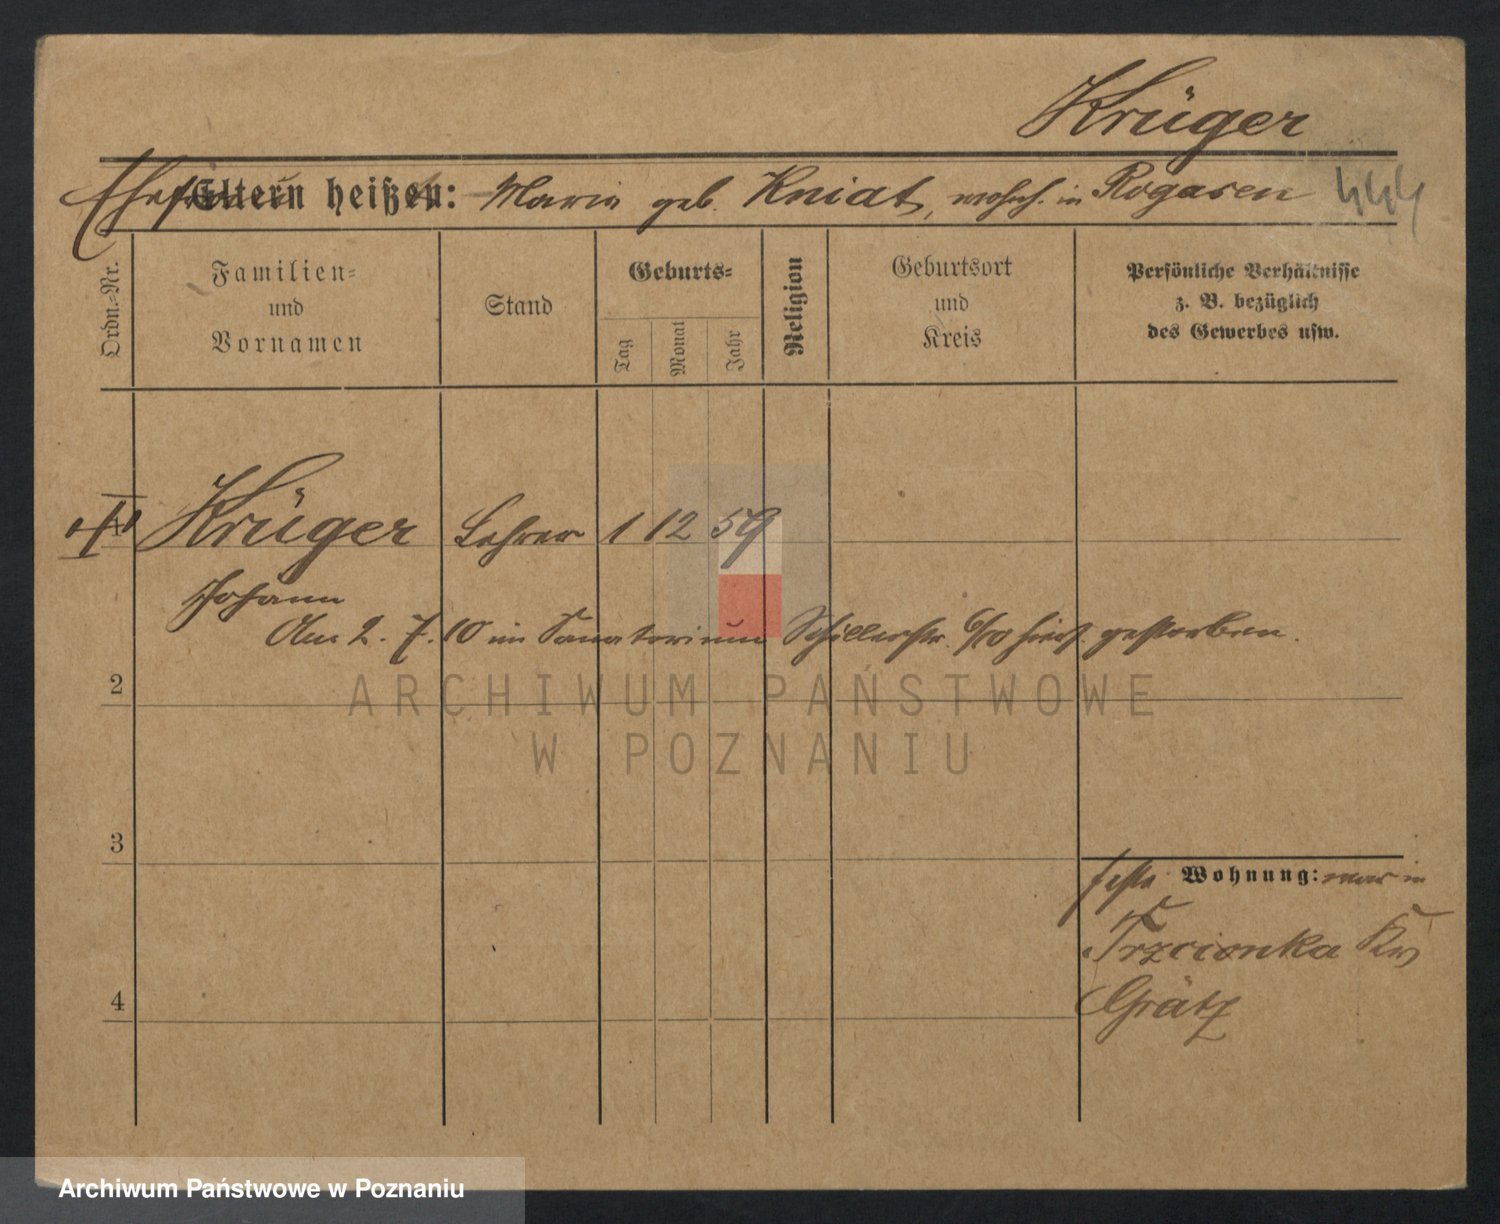 Krüger
Ehefrau Eltern heißen: Maria geb. Kniat, wohnh. in Rogasen 444
Ordn.-Nr.
Familien-
und
Vornamen
Stand
Geburts-
Tag
Monat
Jahr
Religion
Geburtsort
und
Kreis
Persönliche Verhältnisse
z. B. bezüglich
des Gewerbes usw.
Krüger Lehrer 1 12 59
Johann
Am 2. 7. 10 im Sanatorium Schillerstr. 6/10 hier gestorben.
2
3
4
feste Wohnung: war in
Trzcionka Kr
Grätz
ARCHIWUM PAŃSTWOWE
W POZNANIU
Archiwum Państwowe w Poznaniu